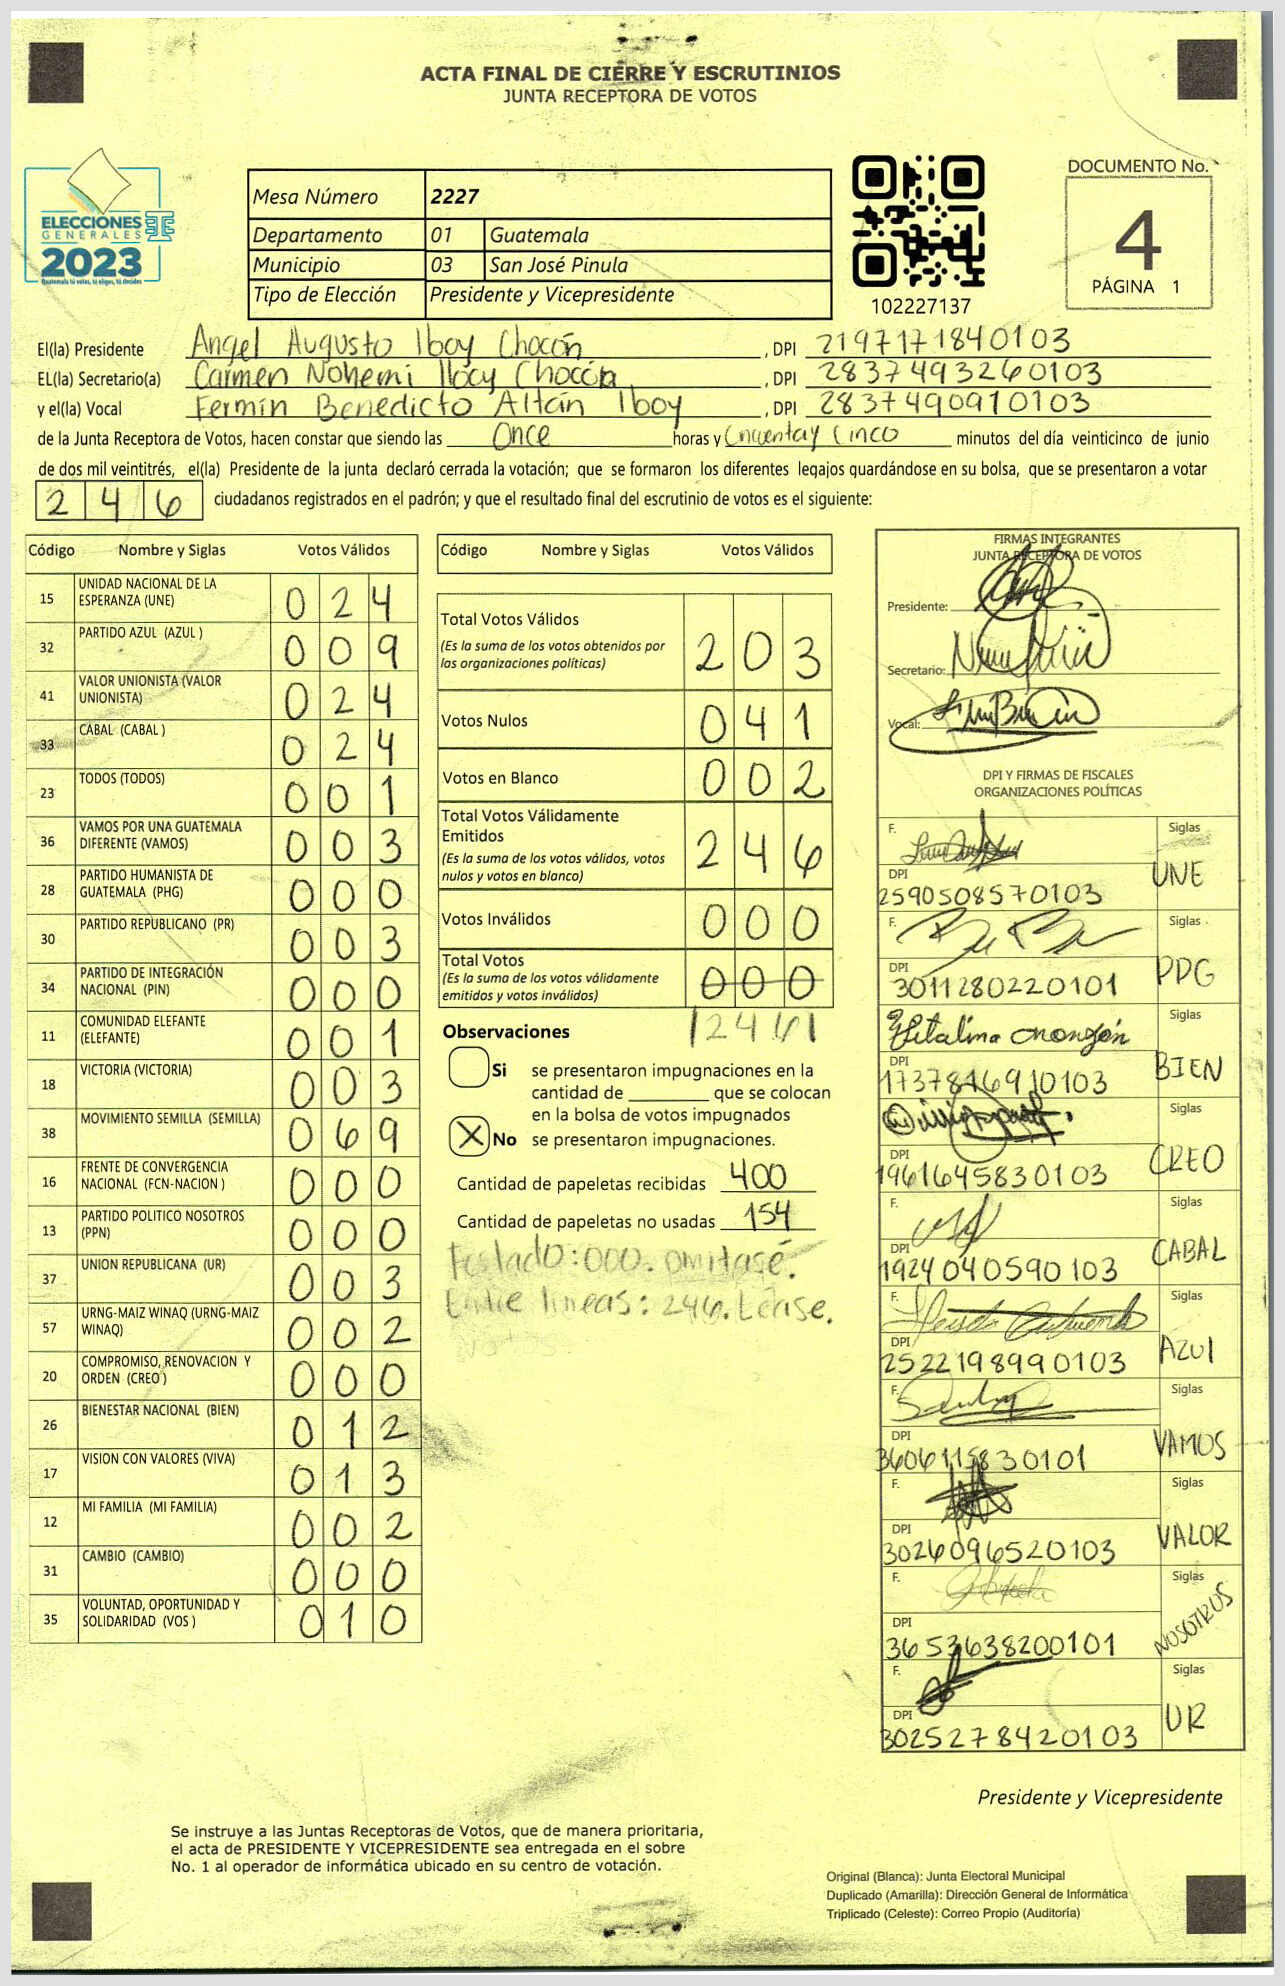 ACTA FINAL DE CIERRE Y ESCRUTINIOS
JUNTA RECEPTORA DE VOTOS
ELECCIONES
GENERALES
2023
Guatemala tú votas, tú eliges, tú decides
Mesa Número 2227
Departamento 01 Guatemala
Municipio 03 San José Pinula
Tipo de Elección Presidente y Vicepresidente
102227137
DOCUMENTO No.
4
PÁGINA 1
El(la) Presidente Angel Augusto Iboy Chocón, DPI 2197171840103
EL(la) Secretario(a) Carmen Nohemi Iboy Chocón, DPI 2837493260103
y el(la) Vocal Fermín Benedicto Altán Iboy, DPI 2837490910103
de la Junta Receptora de Votos, hacen constar que siendo las Once horas y Cincuenta y Cinco minutos del día veinticinco de junio
de dos mil veintitrés, el(la) Presidente de la junta declaró cerrada la votación; que se formaron los diferentes legajos guardándose en su bolsa, que se presentaron a votar
246 ciudadanos registrados en el padrón; y que el resultado final del escrutinio de votos es el siguiente:
Código Nombre y Siglas Votos Válidos
15 UNIDAD NACIONAL DE LA ESPERANZA (UNE) 024
32 PARTIDO AZUL (AZUL ) 009
41 VALOR UNIONISTA (VALOR UNIONISTA) 024
33 CABAL (CABAL ) 024
23 TODOS (TODOS) 001
36 VAMOS POR UNA GUATEMALA DIFERENTE (VAMOS) 003
28 PARTIDO HUMANISTA DE GUATEMALA (PHG) 000
30 PARTIDO REPUBLICANO (PR) 003
34 PARTIDO DE INTEGRACIÓN NACIONAL (PIN) 000
11 COMUNIDAD ELEFANTE (ELEFANTE) 001
18 VICTORIA (VICTORIA) 003
38 MOVIMIENTO SEMILLA (SEMILLA) 069
16 FRENTE DE CONVERGENCIA NACIONAL (FCN-NACION ) 000
13 PARTIDO POLITICO NOSOTROS (PPN) 000
37 UNION REPUBLICANA (UR) 003
57 URNG-MAIZ WINAQ (URNG-MAIZ WINAQ) 002
20 COMPROMISO, RENOVACION Y ORDEN (CREO ) 000
26 BIENESTAR NACIONAL (BIEN) 012
17 VISION CON VALORES (VIVA) 013
12 MI FAMILIA (MI FAMILIA) 002
31 CAMBIO (CAMBIO) 000
35 VOLUNTAD, OPORTUNIDAD Y SOLIDARIDAD (VOS ) 010
Código Nombre y Siglas Votos Válidos
Total Votos Válidos 203
(Es la suma de los votos obtenidos por
las organizaciones políticas)
Votos Nulos 041
Votos en Blanco 002
Total Votos Válidamente
Emitidos 246
(Es la suma de los votos válidos, votos
nulos y votos en blanco)
Votos Inválidos 000
Total Votos 000
(Es la suma de los votos válidamente
emitidos y votos inválidos)
|246|
Observaciones
Si se presentaron impugnaciones en la
cantidad de ________ que se colocan
en la bolsa de votos impugnados
X No se presentaron impugnaciones.
Cantidad de papeletas recibidas 400
Cantidad de papeletas no usadas 154
Testado: 000. omitasé.
Entre lineas: 246. Léase.
FIRMAS INTEGRANTES
JUNTA RECEPTORA DE VOTOS
Presidente:
Secretario:
Vocal:
DPI Y FIRMAS DE FISCALES
ORGANIZACIONES POLÍTICAS
F. Siglas
DPI UNE
2590508570103
F. Siglas
DPI PPG
3011280220101
Vitalina Monzón Siglas
DPI BIEN
1737816910103
Siglas
DPI CREO
1961645830103
F. Siglas
DPI CABAL
1924040590103
F. Siglas
DPI AZUl
2522198990103
F. Siglas
DPI VAMOS
3606115830101
F. Siglas
DPI VALOR
3026096520103
F. Siglas
DPI NOSOTROS
3653638200101
F. Siglas
DPI UR
3025278420103
Presidente y Vicepresidente
Se instruye a las Juntas Receptoras de Votos, que de manera prioritaria,
el acta de PRESIDENTE Y VICEPRESIDENTE sea entregada en el sobre
No. 1 al operador de informática ubicado en su centro de votación.
Original (Blanca): Junta Electoral Municipal
Duplicado (Amarilla): Dirección General de Informática
Triplicado (Celeste): Correo Propio (Auditoría)